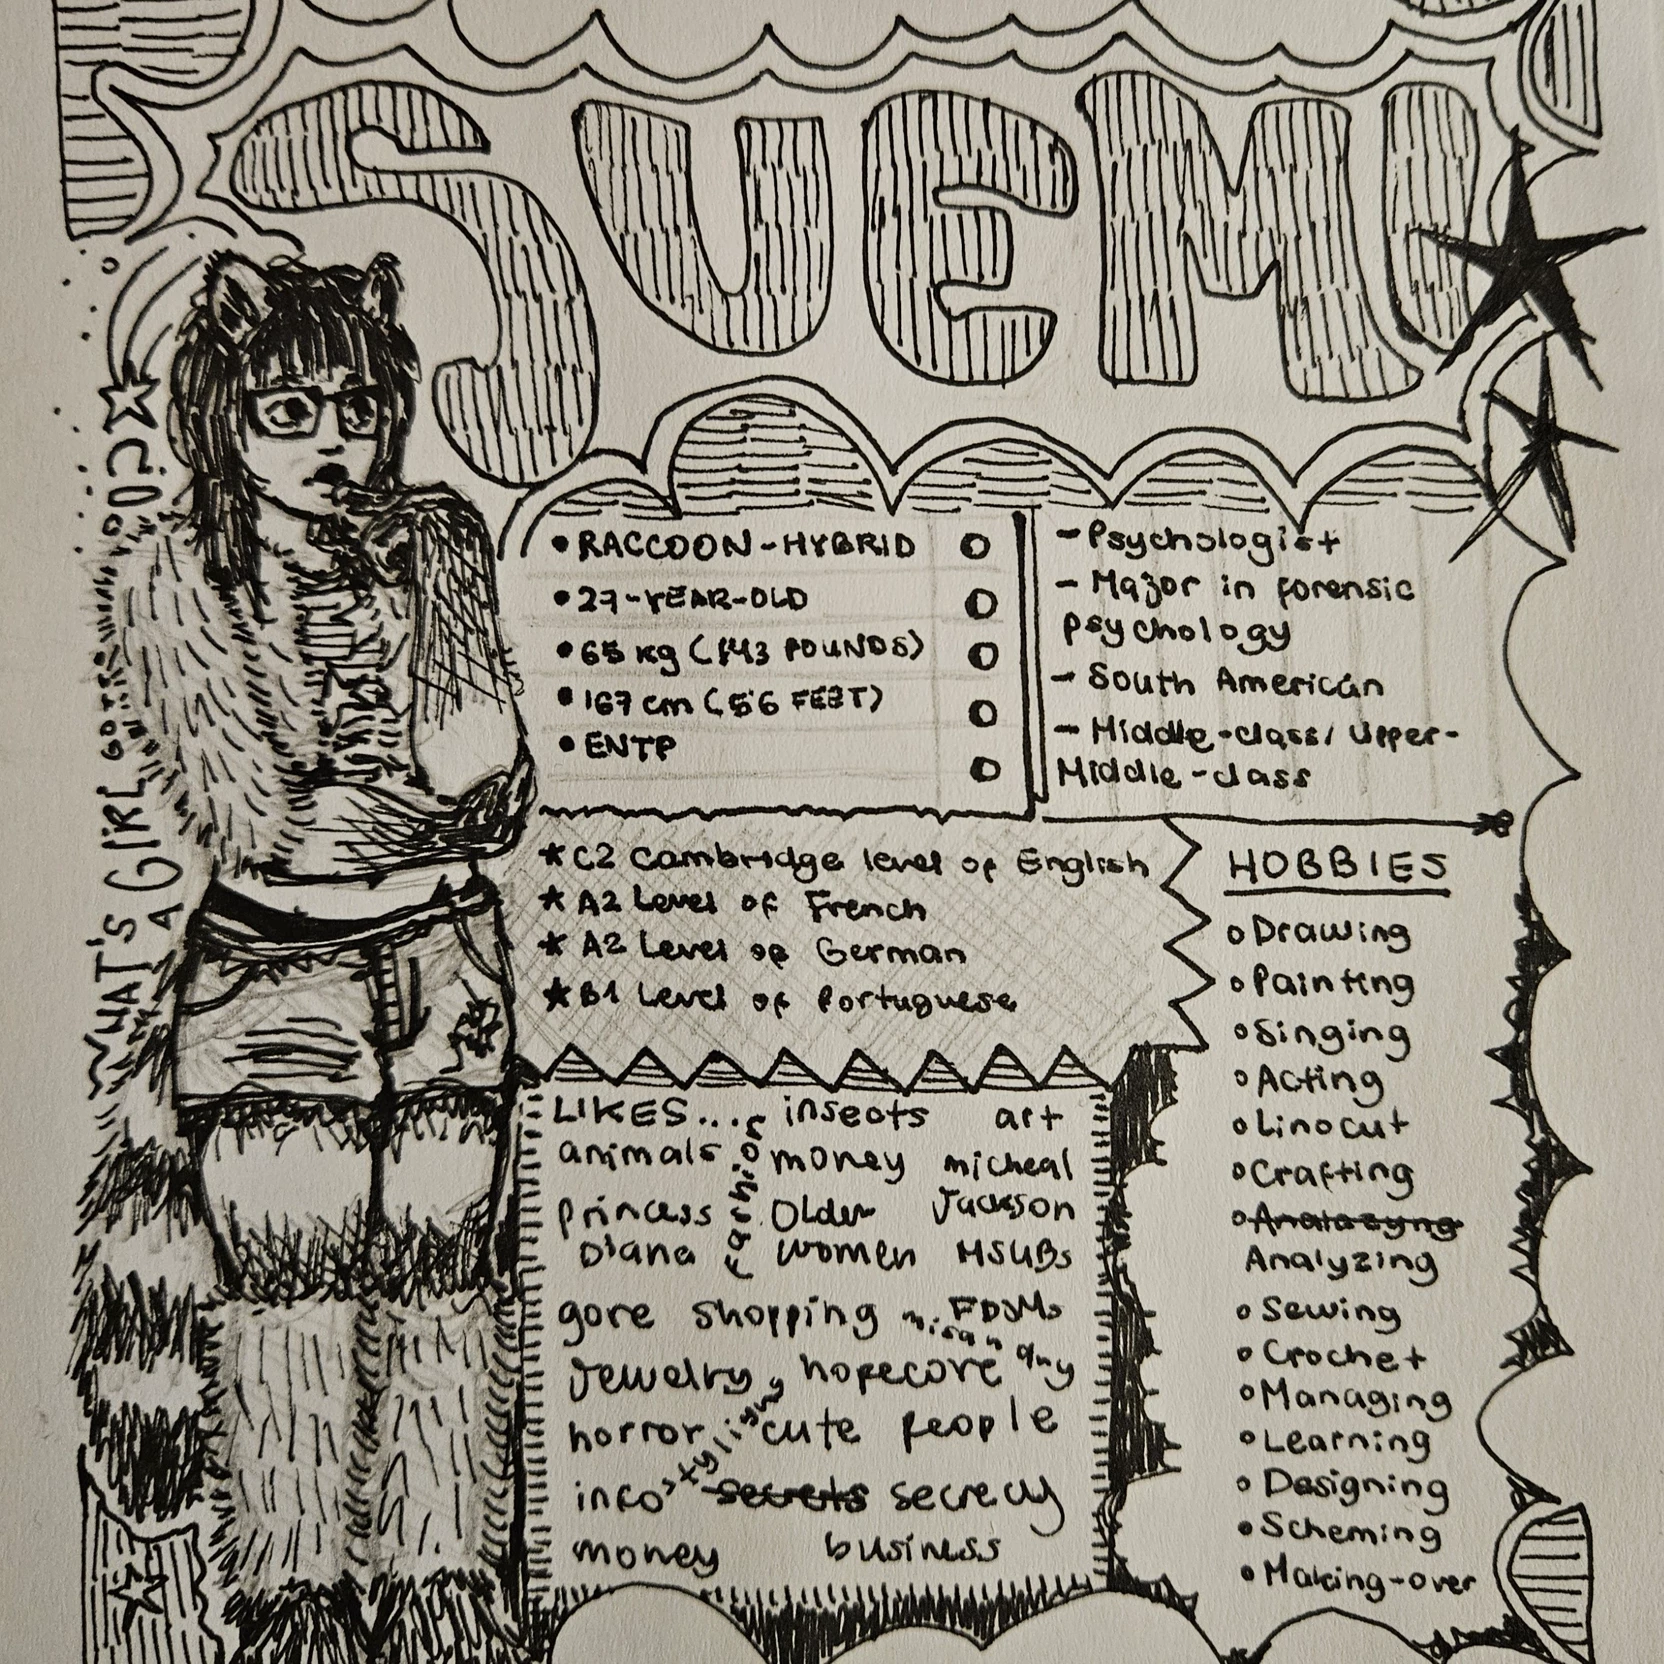 SUEMU
WHAT'S A GIRL GOTTA DO?
•RACCOON-HYBRID
•27-YEAR-OLD
•65 kg (143 POUNDS)
•167 cm (5'6 FEET)
•ENTP
- Psychologist
- Major in forensic
psychology
- South American
- Middle-class/Upper-
Middle-class
★C2 Cambridge level of English
★A2 Level of French
★A2 Level of German
★B1 Level of Portuguese
LIKES... insects art
animals money micheal
fashion
princess older Jackson
Diana women MSUBs
gore shopping FDOMs
misandry
Jewelry, hopecore
horror cute people
stylish
info secrets secrecy
money business
HOBBIES
○Drawing
○Painting
○Singing
○Acting
○Linocut
○Crafting
○Analazyng
Analyzing
○Sewing
○Crochet
○Managing
○Learning
○Designing
•Scheming
•Making-over